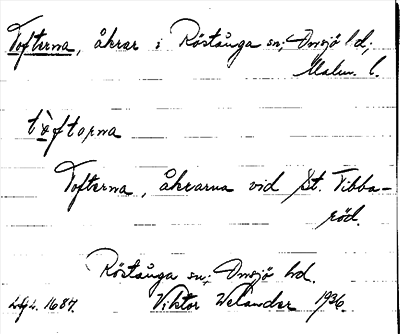 Tofterna, åkrar i Röstånga sn; Onsjö hd;
Malm. l.
Tofterna, åkrarna vid St. Tibba-
röd.
Röstånga sn; Onsjö hd.
1687. Viktor Welander 1936.